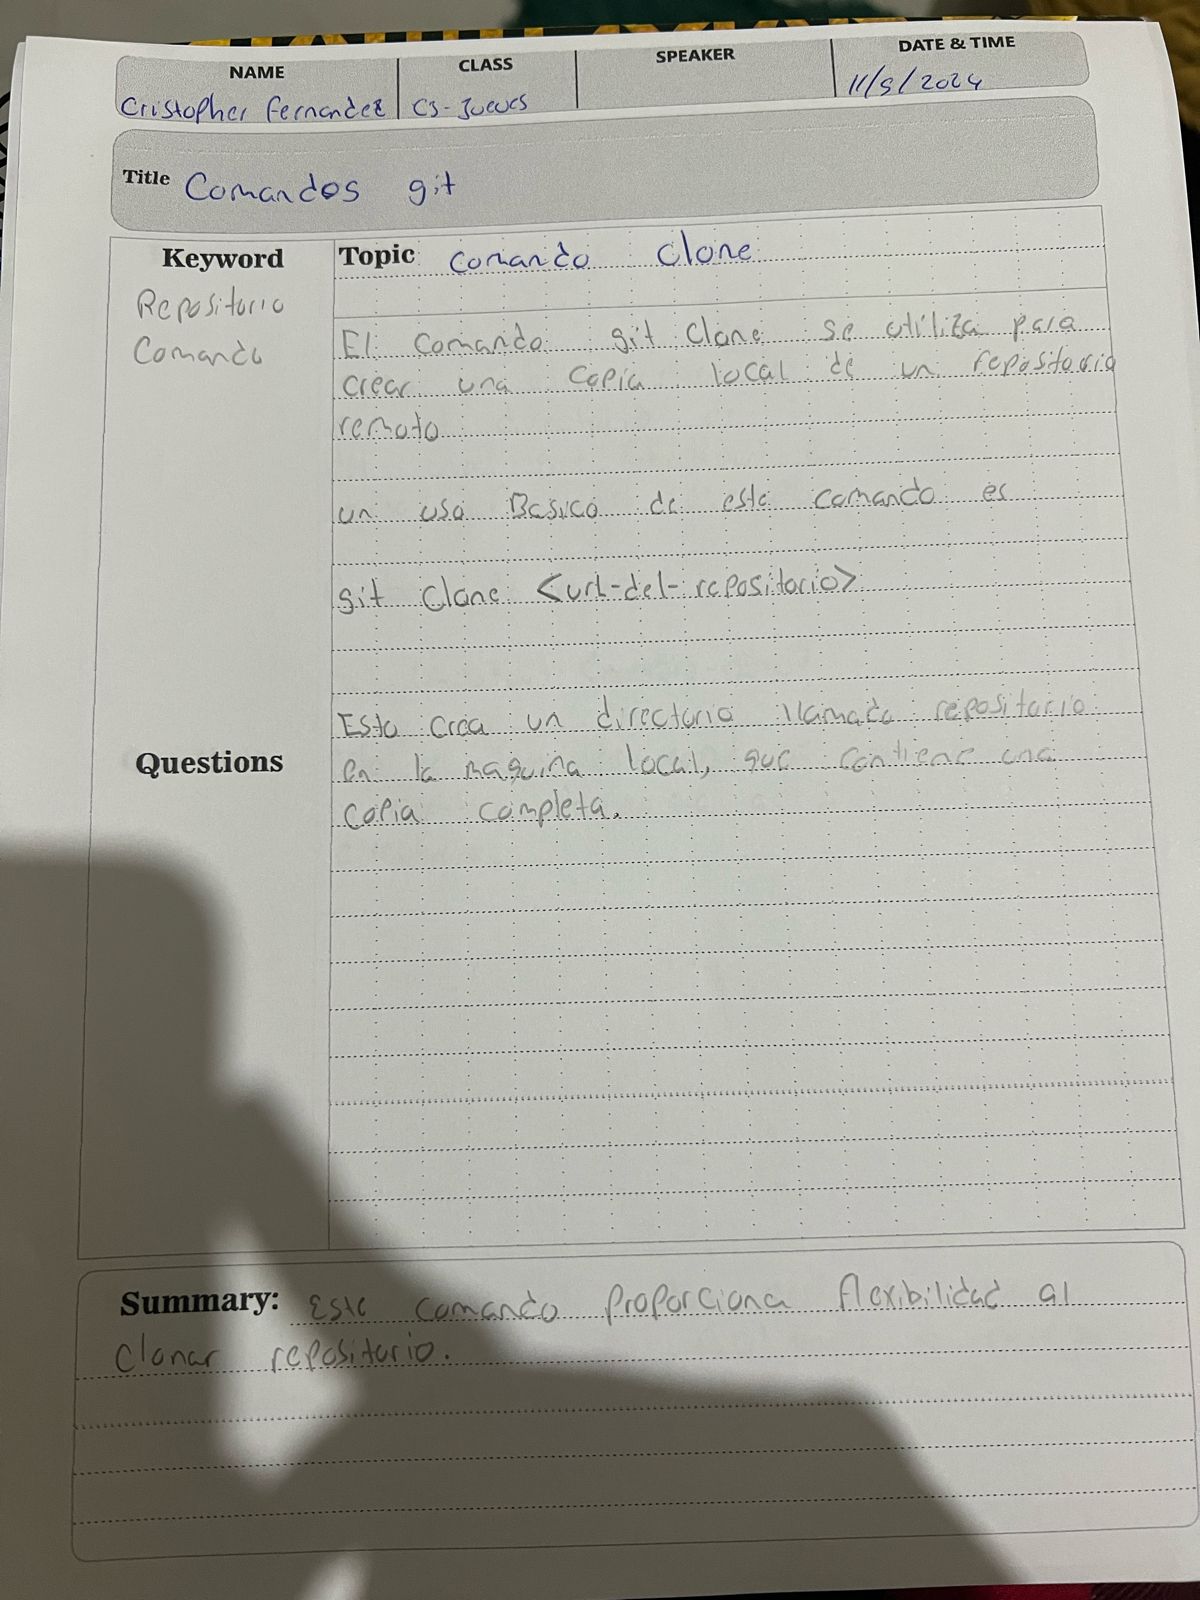 NAME CLASS SPEAKER DATE & TIME
Cristopher Fernandez CS-Jueves 11/5/2024
Title Comandos git
Keyword
Repositorio
Comando
Topic Comando Clone
El Comando git Clone se utiliza para
crear una copia local de un repositorio
remoto
un uso Basico de este comando es
git Clone <url-del-repositorio>
Esto crea un directorio llamado repositorio
en la maquina local, que contiene una
copia completa.
Questions
Summary: Este comando proporciona flexibilidad al
clonar repositorio.